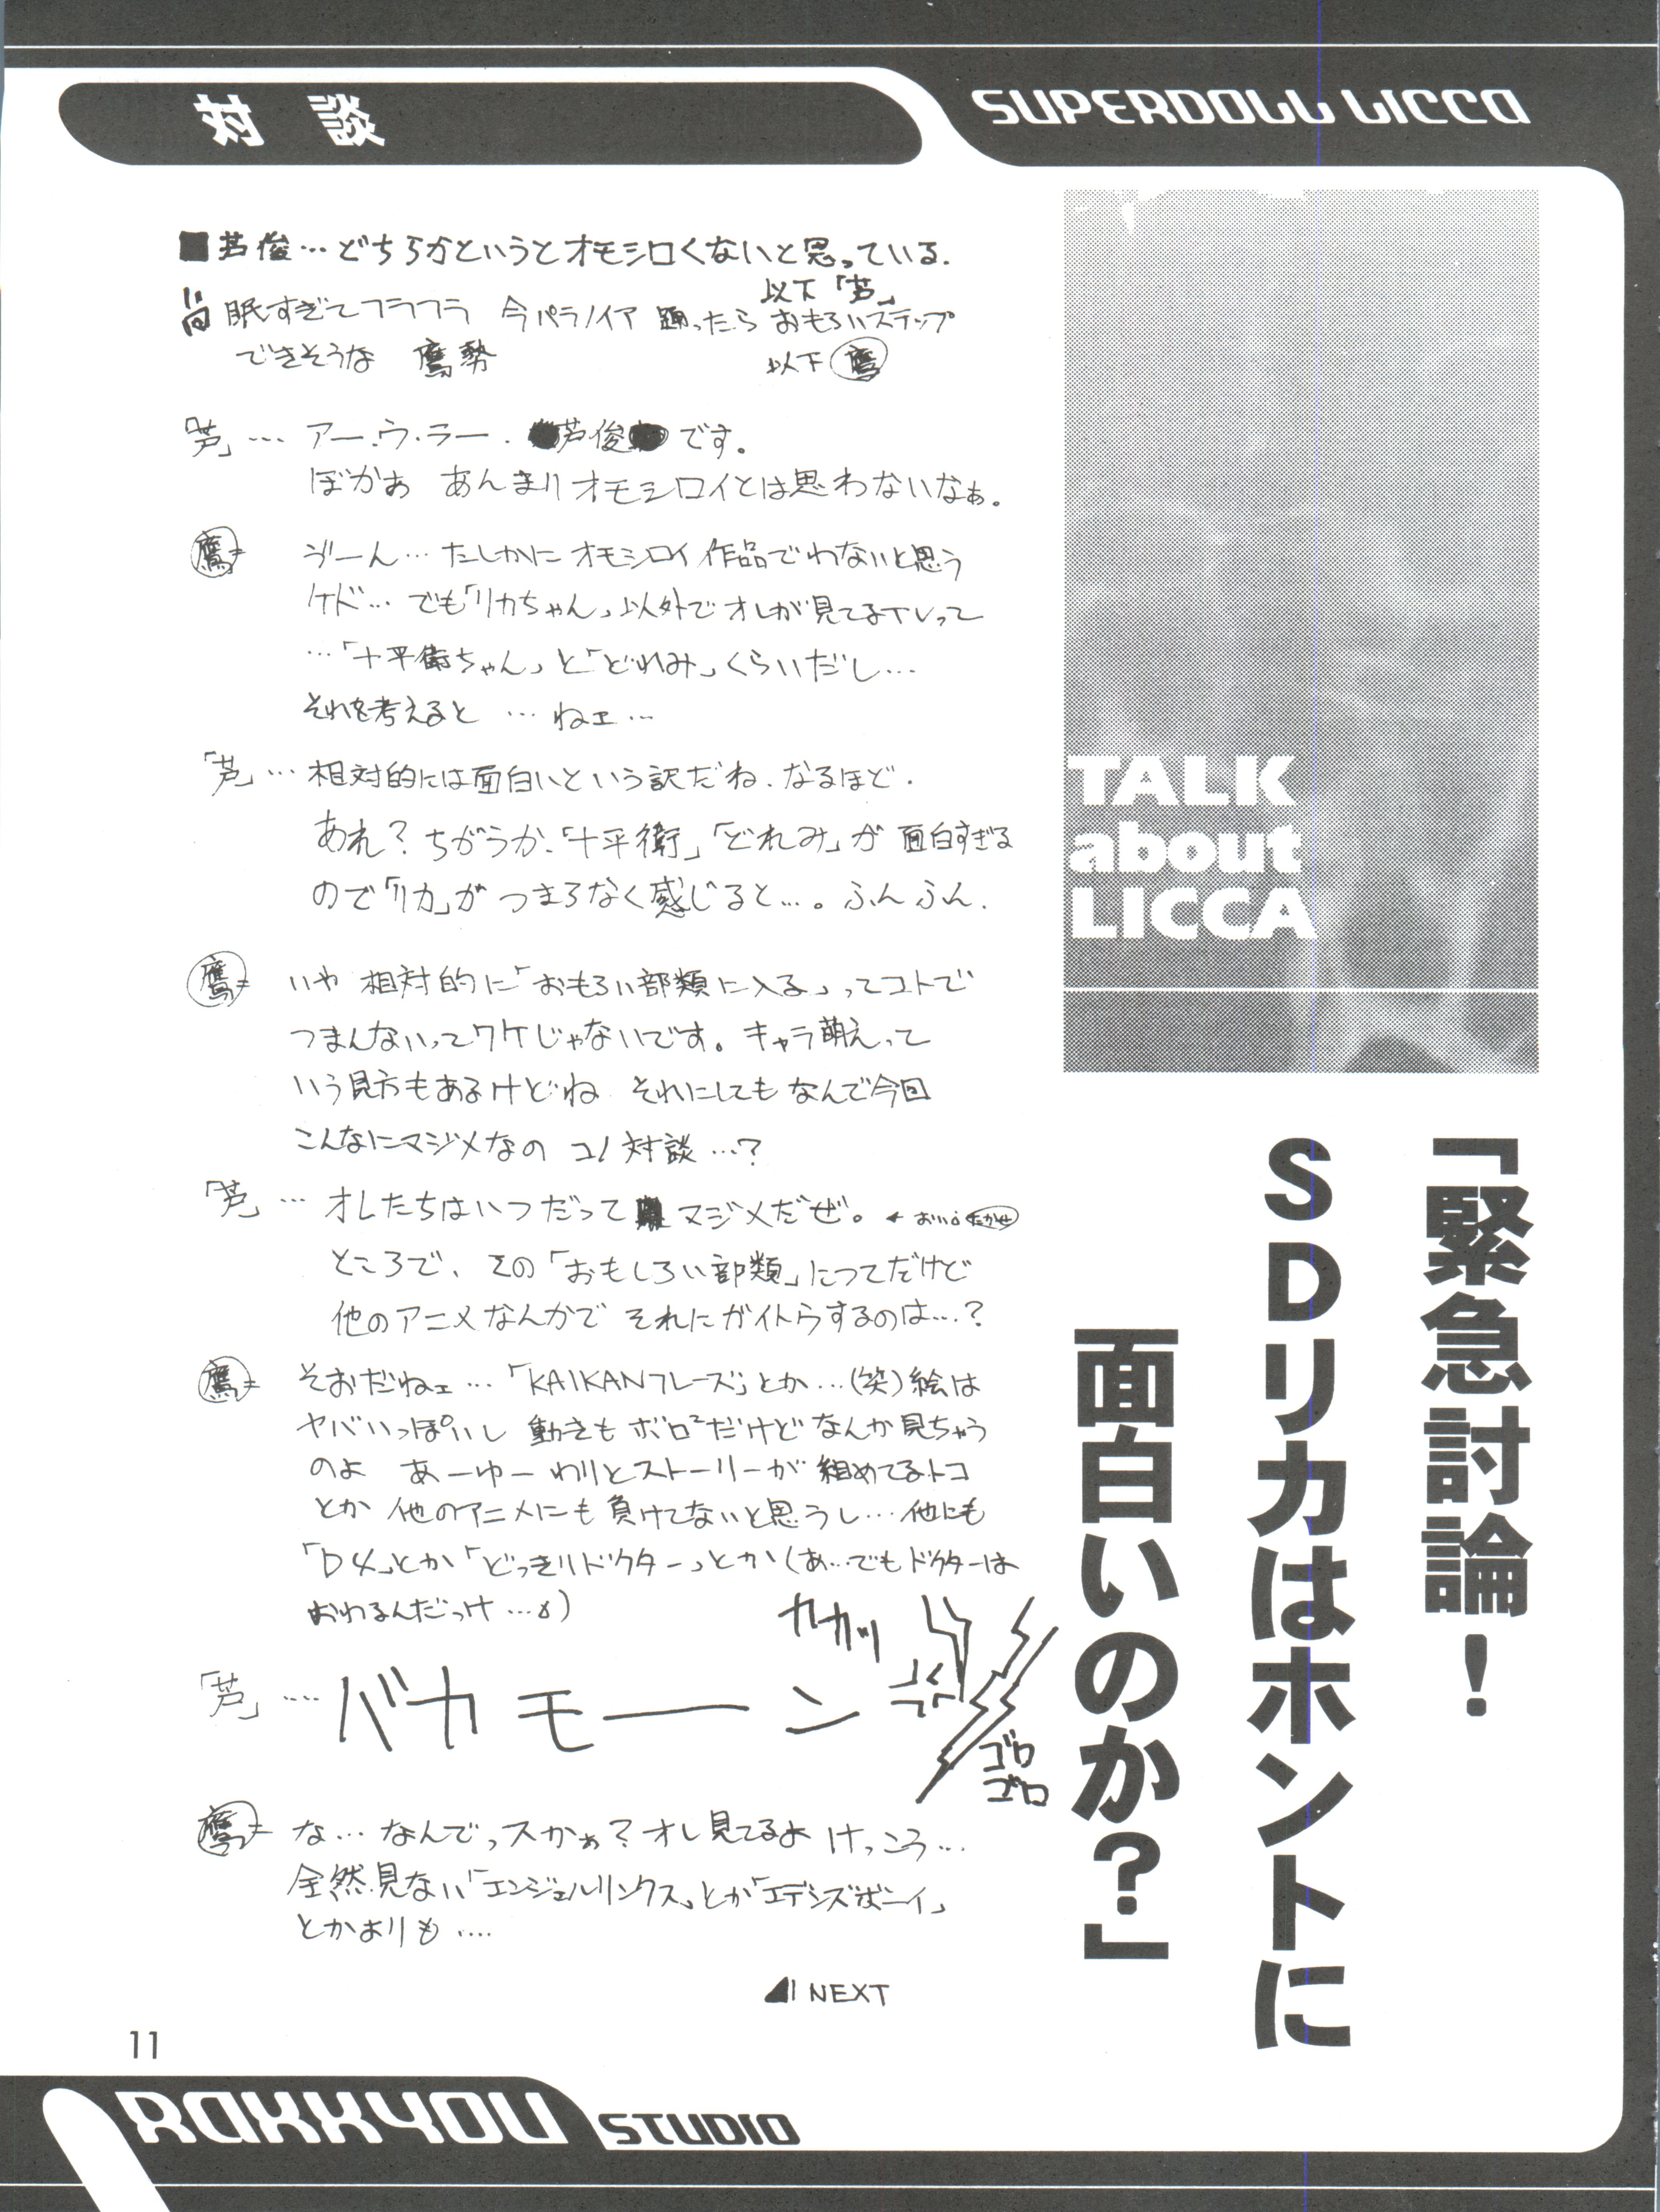 対談
SUPERDOLL LICCA
TALK
about
LICCA
「緊急討論!
SDリカはホントに
面白いのか?」
■芦俊…どちらかというとオモシロくないと思っている.
以下「芦」
眠すぎてフラフラ 今パラノイア踊ったら おもろいステップ
できそうな 鷹勢 以下 鷹
「芦」… アー.ウ.ラー. 芦俊 です。
ぼかぁ あんまりオモシロイとは思わないなぁ。
鷹= ゔーん…たしかに オモシロイ作品でわないと思う
ケド… でも「リカちゃん」以外でオレが見てるTVって
…「十平衛ちゃん」と「どれみ」くらいだし…
それを考えると …ねェ…
「芦」…相対的には面白いという訳だね.なるほど.
あれ?ちがうか.「十平衛」「どれみ」が 面白すぎる
ので「リカ」がつまらなく感じると…。ふんふん.
鷹= いや 相対的に「おもろい部類に入る」ってコトで
つまんないってワケじゃないです。キャラ萌えって
いう見方もあるけどね それにしても なんで今回
こんなにマジメなの コノ対談…?
「芦」… オレたちはいつだって マジメだぜ。 ← おいおい たかせ
ところで、その「おもしろい部類」についてだけど
他のアニメなんかで それにガイトウするのは…?
鷹= そおだねェ…「KAIKANフレーズ」とか…(笑)絵は
ヤバいっぽいし 動きもボロ²だけど なんか見ちゃう
のよ あーゆー わりとストーリーが 組めてるトコ
とか 他のアニメにも負けてないと思うし…他にも
「D4」とか「どっきりドクター」とか(あ…でもドクターは
おわるんだっけ…)
カカッ
「芦」…. バカモーーン
ゴロ
ゴロ
鷹= な… なんでっスかぁ?オレ見てるよ けっこう…
全然見ない「エンジェルリンクス」とか「エデンズボーイ」
とかよりも….
NEXT
11
RAKKYOU STUDIO